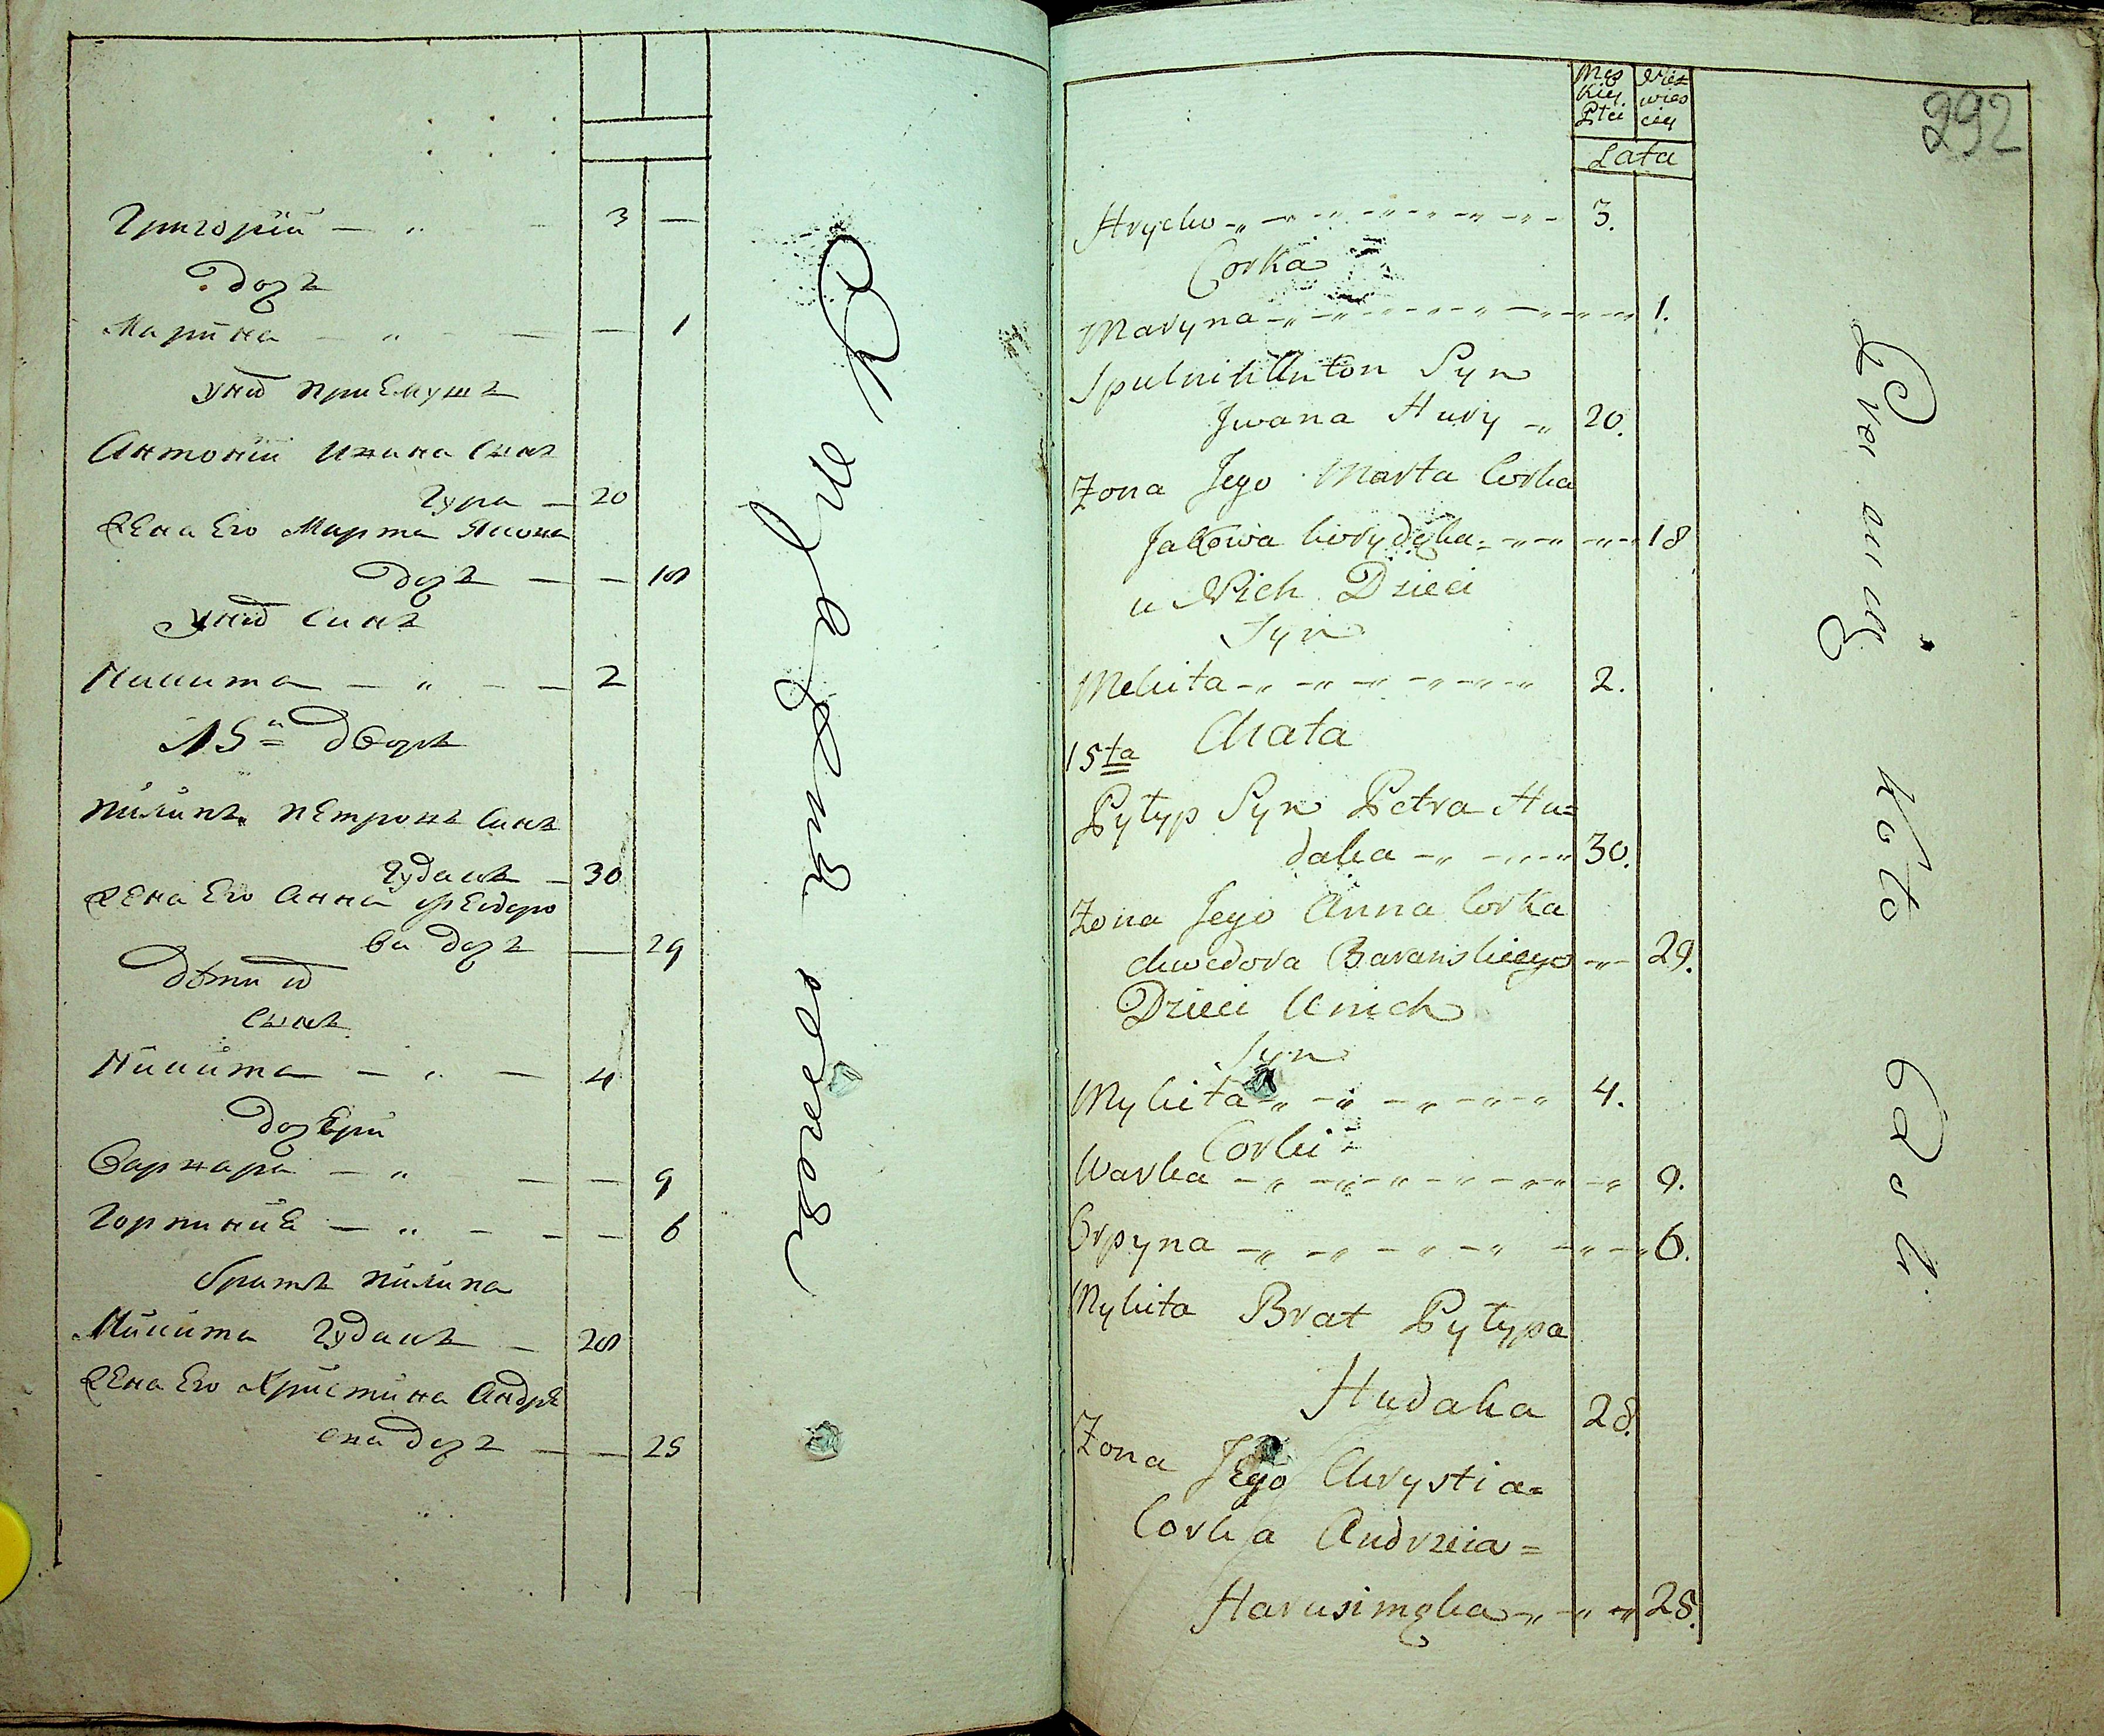 Григорій — „ — 3 —
дочъ
Марина — „ — — 1
у нид приемушъ
Антоній Ивана синъ
Гура — 20
Жена Его Марта Якова
дочъ — — 18
у нид синъ
Никита — „ — — 2
15й дворъ
Пилипъ Петровъ синъ
Гудакъ — 30
Жена Его Анна Федоро
ва дочъ — 29
Дѣти ид
синъ
Никита — „ — 4
дочери
Варвара — „ — — 9
Горпина — „ — — — 6
братъ Пилипа
Микита Гудакъ — 28
Жена Его Христина Андре
ева дочъ — — 25
292
Męs
kiey
Płci
Niez
wies
ciey
Lata
Hrycko 3.
Corka
Maryna 1.
Spulnik Anton Syn
Jwana Hury 20.
Zona Jego Marta Corka
Jakowa 18
u Nich Dzieci
Syn
Mekita 2.
15ta Chata
Pyłyp Syn Petra Hu=
daka 30.
Zona Jego Anna Corka
Chwedora Baranskiego 29.
Dzieci Unich
Syn
Mykita 4.
Corki
Warka 9.
Orpyna 6.
Mykita Brat Pyłypa
Hudaka 28.
Zona Jego Chrystia=
Corka Andrzeia=
25.